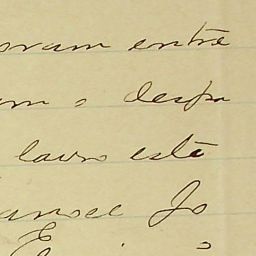 oram entre
am o despa
lavro este
anoel Jo
E